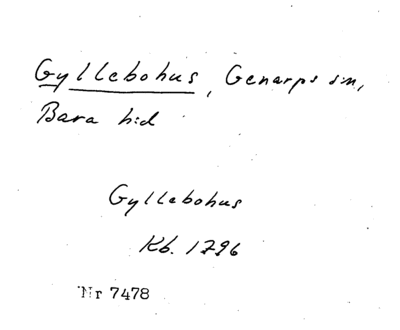 Gyllebohus, Genarps sn,
Bara hd
Gyllebohus
Kb. 1796
Nr 7478